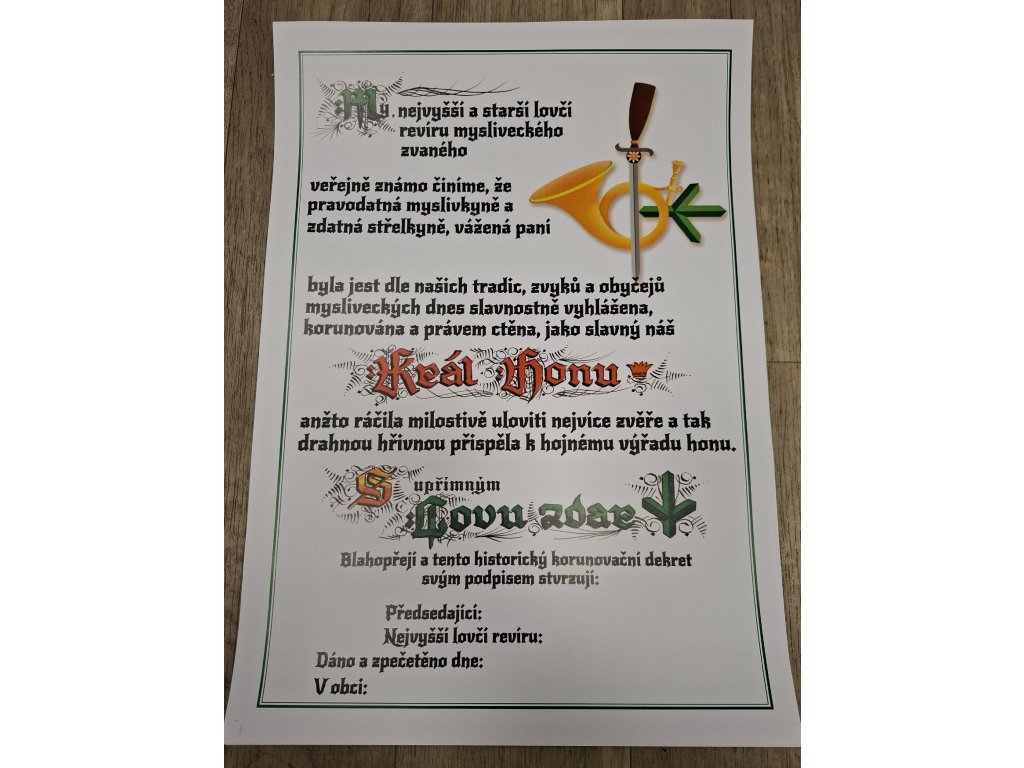 My, nejvyšší a starší lovčí
revíru mysliveckého
zvaného
veřejně známo činíme, že
pravodatná myslivkyně a
zdatná střelkyně, vážená paní
byla jest dle našich tradic, zvyků a obyčejů
mysliveckých dnes slavnostně vyhlášena,
korunována a právem ctěna, jako slavný náš
Král Honu
anžto ráčila milostivě uloviti nejvíce zvěře a tak
drahnou hřivnou přispěla k hojnému výřadu honu.
S upřímným
Lovu zdar
Blahopřejí a tento historický korunovační dekret
svým podpisem stvrzují:
Předsedající:
Nejvyšší lovčí revíru:
Dáno a zpečetěno dne:
V obci: